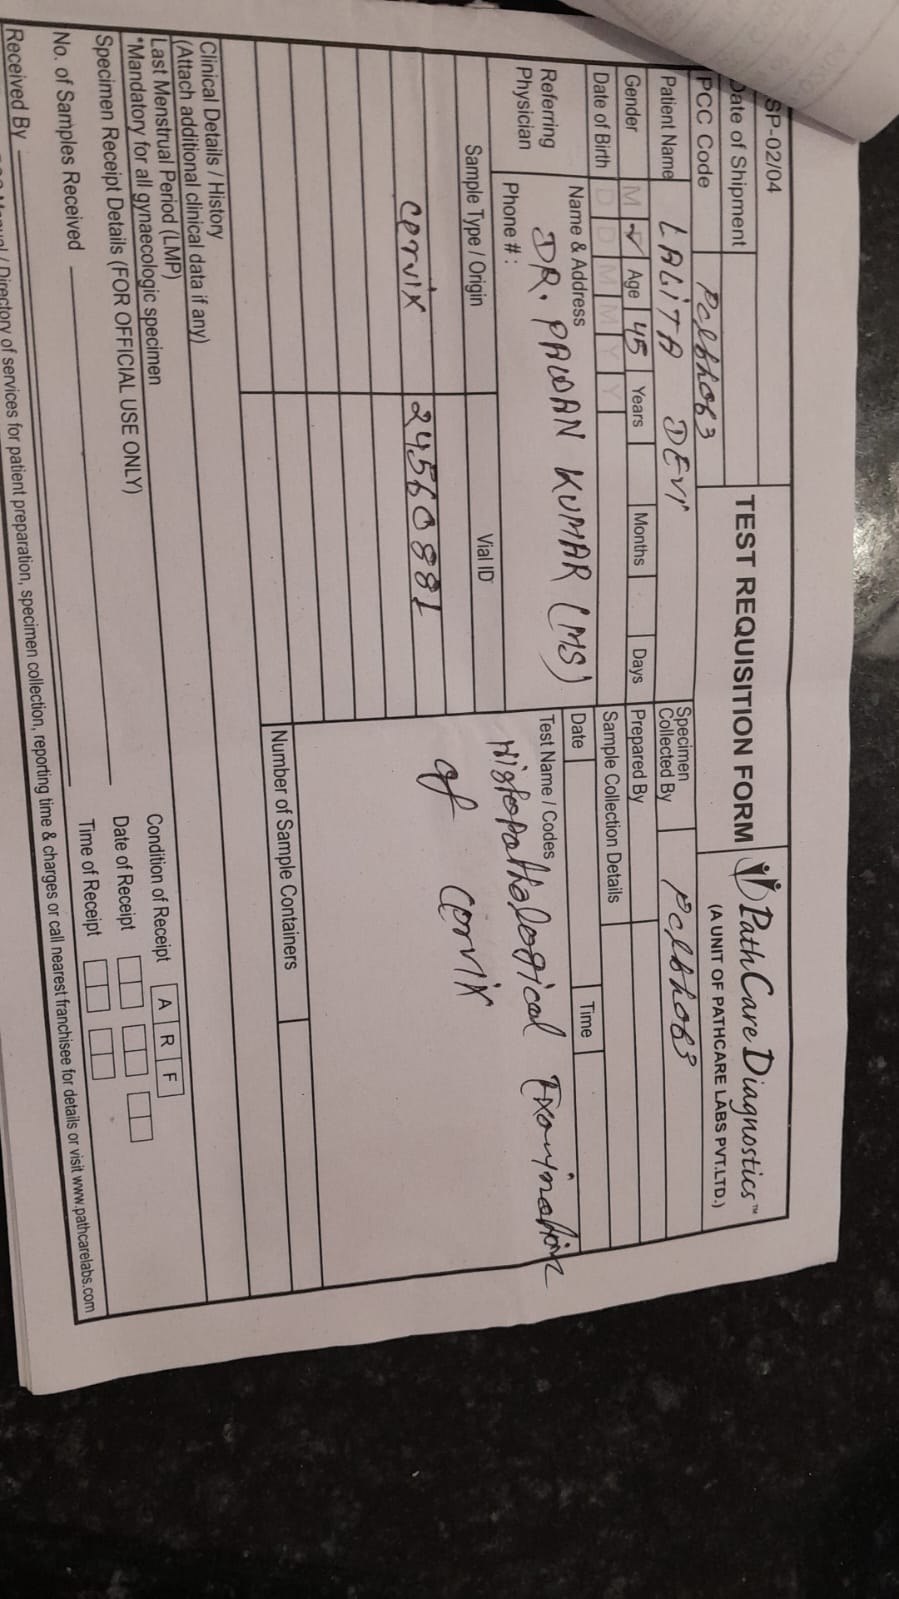 SP-02/04
Date of Shipment
TEST REQUISITION FORM
PathCare Diagnostics™
(A UNIT OF PATHCARE LABS PVT.LTD.)
PCC Code
Patient Name LALITA DEVI
Specimen Collected By
Gender M ✓ Age 45 Years Months Days
Prepared By
Date of Birth D D M M Y Y
Sample Collection Details
Date Time
Referring Physician
Name & Address
DR. PAWAN KUMAR (MS)
Phone # :
Test Name / Codes
Histopathological Examination
of Corvix
Sample Type / Origin Vial ID
Cervix 24560881
Number of Sample Containers
Clinical Details / History
(Attach additional clinical data if any)
Last Menstrual Period (LMP)
*Mandatory for all gynaecologic specimen
Specimen Receipt Details (FOR OFFICIAL USE ONLY)
Condition of Receipt A R F
Date of Receipt
No. of Samples Received
Time of Receipt
Received By
Directory of services for patient preparation, specimen collection, reporting time & charges or call nearest franchisee for details or visit www.pathcarelabs.com